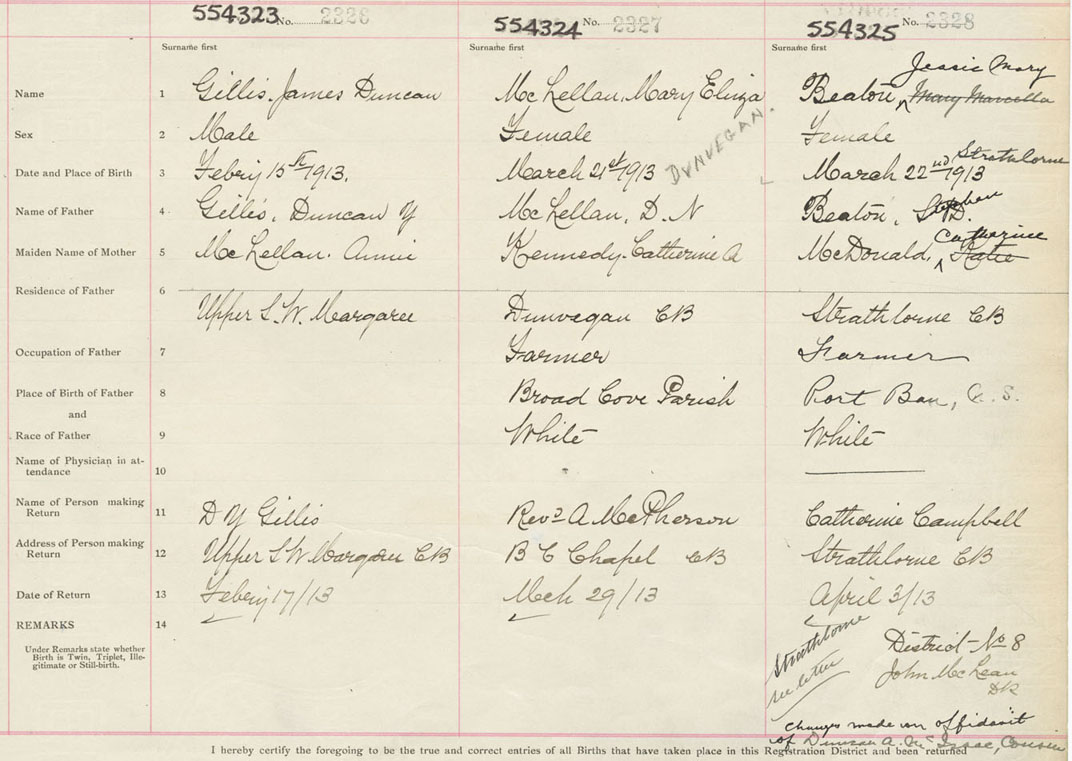 554323 No. 2326 554324 No. 2327 554325 No. 2328
Surname first Surname first Surname first
Jessie Mary
Name 1 Gillis, James Duncan McLellan, Mary Eliza Beaton, Mary Marcella
Sex 2 Male Female Female
DUNVEGAN. Strathlorne
Date and Place of Birth 3 Febry 15th 1913. March 21st 1913 March 22nd 1913
Stephen
Name of Father 4 Gillis, Duncan Y McLellan, D. N Beaton, D.
Catherine
Maiden Name of Mother 5 McLellan. Annie Kennedy. Catherine A McDonald, Katie
Residence of Father 6
Upper S. W. Margaree Dunvegan CB Strathlorne CB
Occupation of Father 7 Farmer Farmer
Place of Birth of Father 8 Broad Cove Parish Port Ban, C. S.
and
Race of Father 9 White White
Name of Physician in at-
tendance 10
Name of Person making
Return 11 D Y Gillis Revd A McPherson Catherine Campbell
Address of Person making
Return 12 Upper S W Margaree CB B C Chapel CB Strathlorne CB
Date of Return 13 Febry 17/13 Mch 29/13 April 3/13
REMARKS 14
Under Remarks state whether
Birth is Twin, Triplet, Ille-
gitimate or Still-birth.
Strathlorne
see letter
District No 8
John McLean
DR
changes made on affidavit
of Duncan A. McIsaac, Cousin
I hereby certify the foregoing to be the true and correct entries of all Births that have taken place in this Registration District and been returned